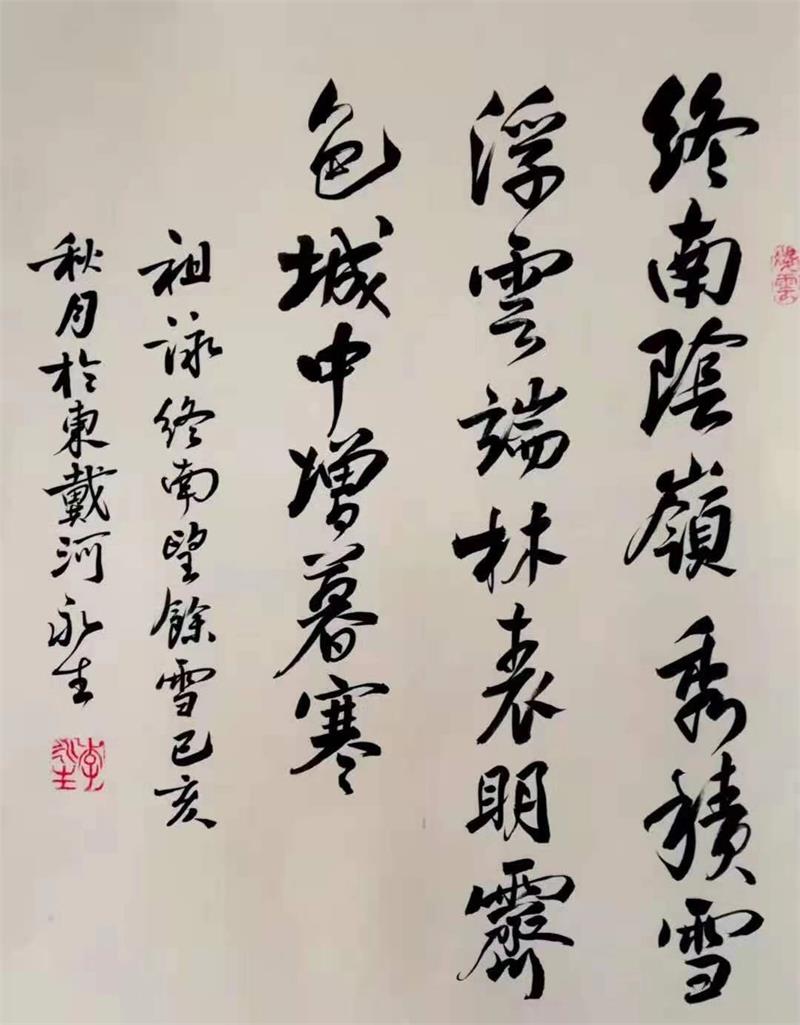 終南陰嶺秀積雪
浮雲端林表明霽
色城中增暮寒
祖詠終南望餘雪己亥
秋月於東戴河永生